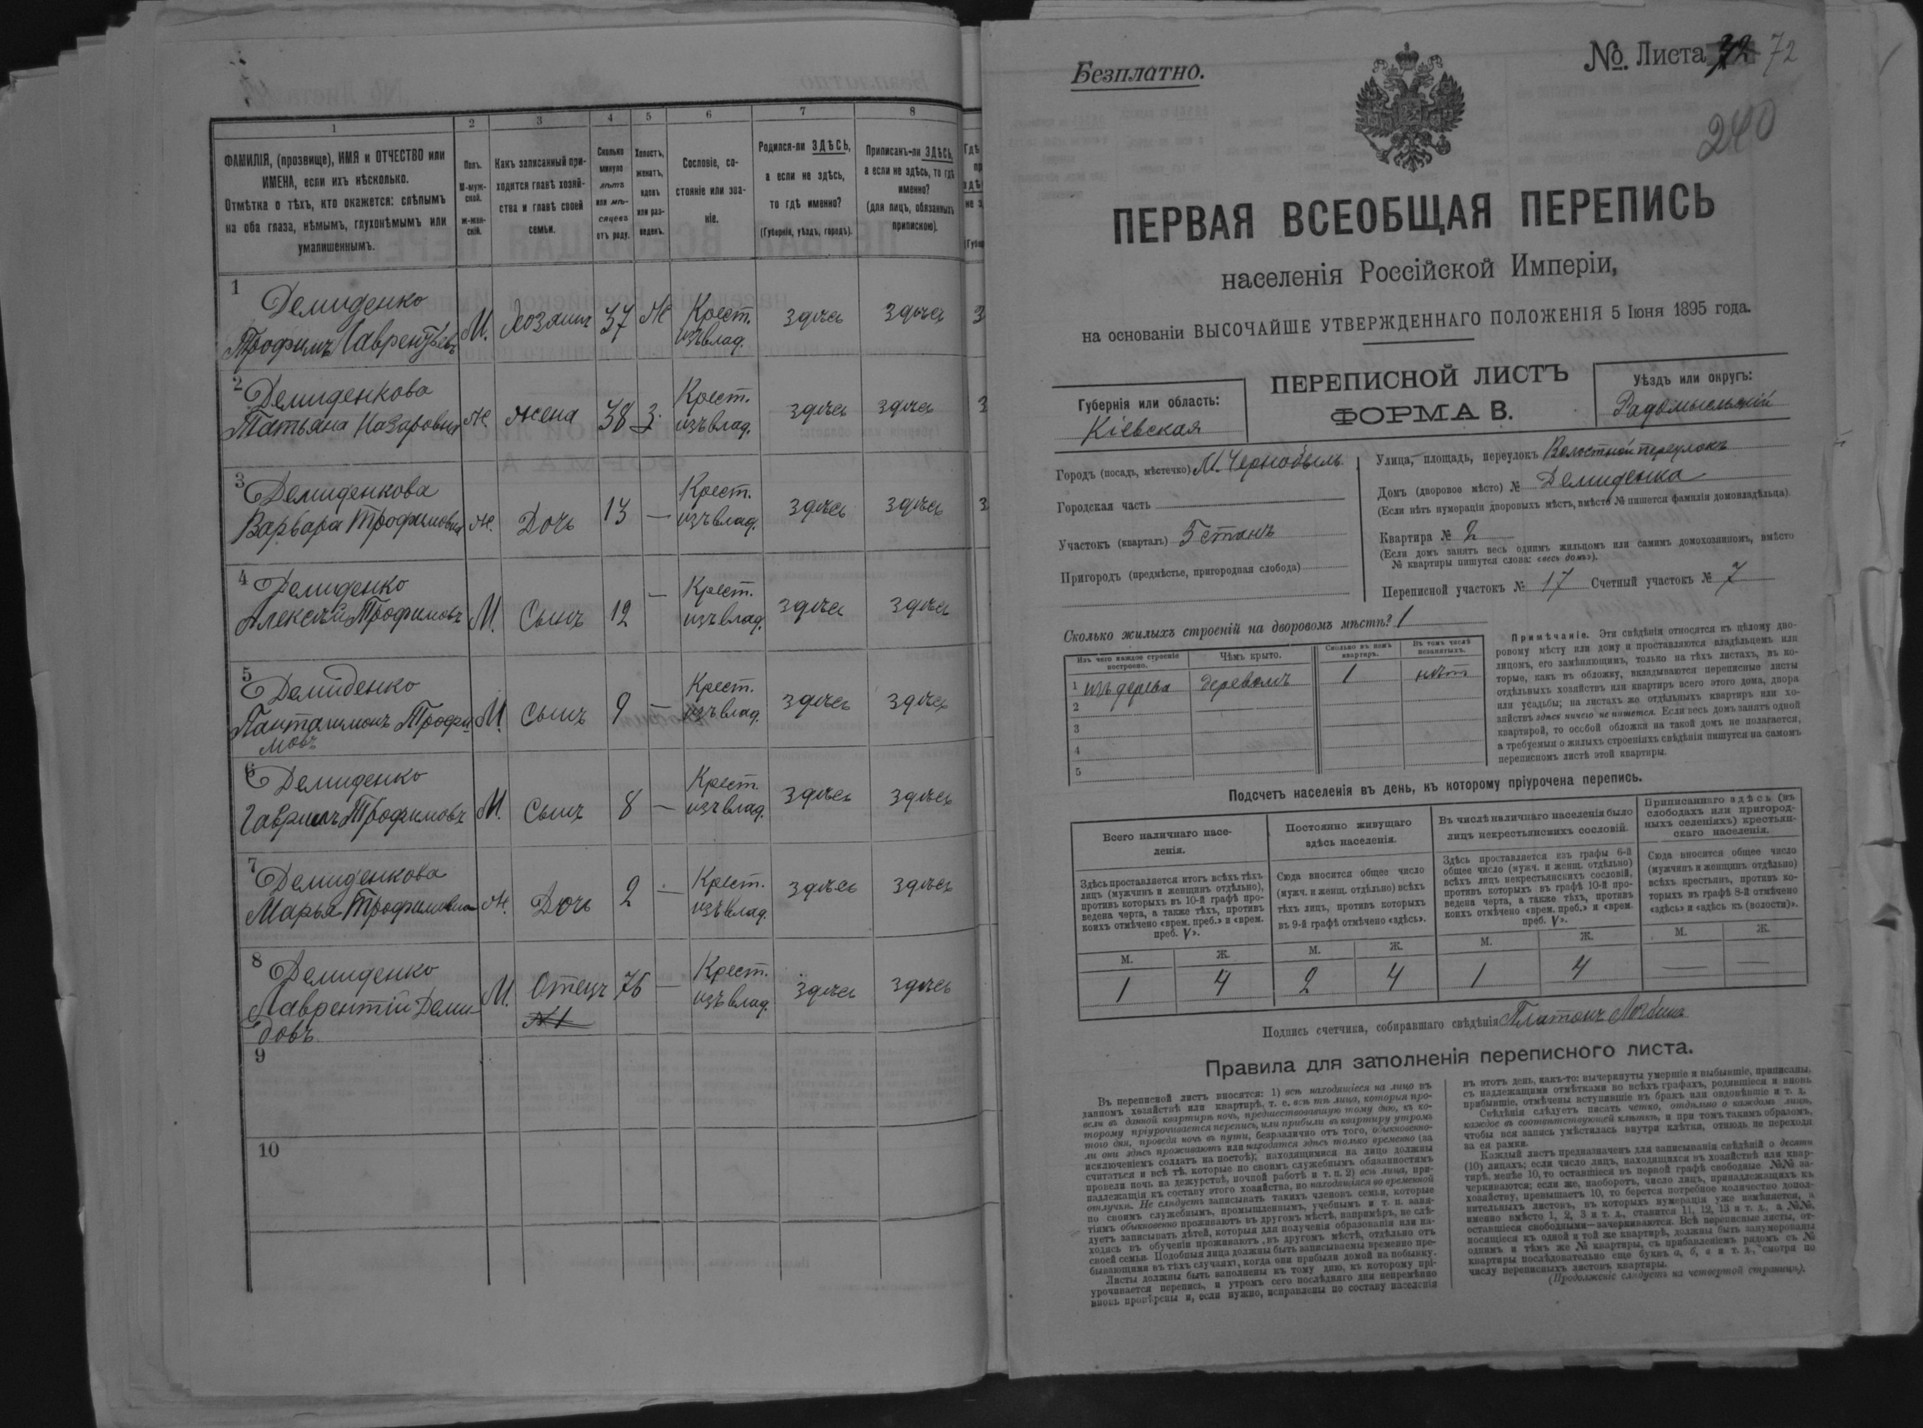 1
2
3
4
5
6
7
8
ФАМИЛІЯ, (прозвище), ИМЯ и ОТЧЕСТВО или
ИМЕНА, если ихъ нѣсколько.
Отмѣтка о тѣхъ, кто окажется: слѣпымъ
на оба глаза, нѣмымъ, глухонѣмымъ или
умалишеннымъ.
Полъ.
М-муж-
ской.
ж-жен-
скій.
Какъ записанный при-
ходится главѣ хозяй-
ства и главѣ своей
семьи.
Сколько
минуло
лѣтъ
или мѣ-
сяцевъ
отъ роду.
Холостъ,
женатъ,
вдовъ
или раз-
веденъ.
Сословіе, со-
стояніе или зва-
ніе.
Родился-ли ЗДѢСЬ,
а если не здѣсь,
то гдѣ именно?
(Губернія, уѣздъ, городъ).
Приписанъ-ли ЗДѢСЬ,
а если не здѣсь, то гдѣ
именно?
(для лицъ, обязанныхъ
припискою).
1 Демиденко
Трофимъ Лаврентьевъ М. хозяинъ 37 Ж Крест. изъ влад. здѣсь здѣсь
2 Демиденкова
Татьяна Назаровна Ж жена 38 З. Крест. изъ влад. здѣсь здѣсь
3 Демиденкова
Варвара Трофимовна Ж. Дочь 13 — Крест. изъ влад. здѣсь здѣсь
4 Демиденко
Алексѣй Трофимовъ М. Сынъ 12 — Крест. изъ влад. здѣсь здѣсь
5 Демиденко
Пантелимонъ Трофи
мовъ М. Сынъ 9 — Крест. изъ влад. здѣсь здѣсь
6 Демиденко
Гавриилъ Трофимовъ М. Сынъ 8 — Крест. изъ влад. здѣсь здѣсь
7 Демиденкова
Марья Трофимовна Ж. Дочь 2 — Крест. изъ влад. здѣсь здѣсь
8 Демиденко
Лаврентій Деми-
довъ М. Отецъ №1 76 — Крест. изъ влад. здѣсь здѣсь
9
10
Безплатно.
№. Листа 72
240
ПЕРВАЯ ВСЕОБЩАЯ ПЕРЕПИСЬ
населенія Россійской Имперіи,
на основаніи ВЫСОЧАЙШЕ УТВЕРЖДЕННАГО ПОЛОЖЕНІЯ 5 Іюня 1895 года.
ПЕРЕПИСНОЙ ЛИСТЪ
ФОРМА В.
Губернія или область:
Кіевская
Уѣздъ или округъ:
Радомысльскій
Городъ (посадъ, мѣстечко) М. Чернобыль
Городская часть
Участокъ (кварталъ) 5 станъ
Пригородъ (предмѣстье, пригородная слобода)
Улица, площадь, переулокъ Волостной переулокъ
Домъ (дворовое мѣсто) № Демиденка
(Если нѣтъ нумераціи дворовыхъ мѣстъ, вмѣсто № пишется фамилія домовладѣльца).
Квартира № 2
(Если домъ занятъ весь однимъ жильцомъ или самимъ домохозяиномъ, вмѣсто
№ квартиры пишутся слова: «весь домъ»).
Переписной участокъ № 17 Счетный участокъ № 7
Сколько жилыхъ строеній на дворовомъ мѣстѣ? 1
Изъ чего каждое строеніе
построено.
Чѣмъ крыто.
Сколько въ немъ
квартиръ.
Въ томъ числѣ
незанятыхъ.
1 изъ дерева деревомъ 1 нѣтъ
2
3
4
5
Примѣчаніе. Эти свѣдѣнія относятся къ цѣлому дво-
ровому мѣсту или дому и проставляются владѣльцемъ или
лицомъ, его замѣняющимъ, только на тѣхъ листахъ, въ ко-
торые, какъ въ обложку, вкладываются переписные листы
отдѣльныхъ хозяйствъ или квартиръ всего этого дома, двора
или усадьбы; на листахъ же отдѣльныхъ квартиръ или хо-
зяйствъ здѣсь ничего не пишется. Если весь домъ занятъ одной
квартирой, то особой обложки на такой домъ не полагается,
а требуемыя о жилыхъ строеніяхъ свѣдѣнія пишутся на самомъ
переписномъ листѣ этой квартиры.
Подсчетъ населенія въ день, къ которому пріурочена перепись.
Всего наличнаго насе-
ленія.
Постоянно живущаго
здѣсь населенія.
Въ числѣ наличнаго населенія было
лицъ некрестьянскихъ сословій.
Приписаннаго здѣсь (въ
слободахъ или пригород-
ныхъ селеніяхъ) крестьян-
скаго населенія.
Здѣсь проставляется итогъ всѣхъ тѣхъ
лицъ (мужчинъ и женщинъ отдѣльно),
противъ которыхъ въ 10-й графѣ про-
ведена черта, а также тѣхъ, противъ
коихъ отмѣчено «врем. преб.» и «врем.
преб. V».
Сюда вносится общее число
(мужч. и женщ. отдѣльно) всѣхъ
тѣхъ лицъ, противъ которыхъ
въ 9-й графѣ отмѣчено «здѣсь».
Здѣсь проставляется изъ графы 6-й
общее число (мужч. и женщ. отдѣльно)
всѣхъ лицъ некрестьянскихъ сословій,
противъ которыхъ въ графѣ 10-й про-
ведена черта, а также тѣхъ, противъ
коихъ отмѣчено «врем. преб.» и «врем.
преб. V».
Сюда вносится общее число
(мужчинъ и женщинъ отдѣльно)
всѣхъ крестьянъ, противъ ко-
торыхъ въ графѣ 8-й отмѣчено
«здѣсь» и «здѣсь къ (волости)».
М. Ж. М. Ж. М. Ж. М. Ж.
1 4 2 4 1 4 — —
Подпись счетчика, собиравшаго свѣдѣнія Платонъ
Правила для заполненія переписного листа.
Въ переписной листъ вносятся: 1) всѣ находящіеся на лицо въ
данномъ хозяйствѣ или квартирѣ, т. е. всѣ тѣ лица, которыя про-
вели въ данной квартирѣ ночь, предшествовавшую тому дню, къ ко-
торому пріурочивается перепись, или прибыли въ квартиру утромъ
того дня, проведя ночь въ пути, безразлично отъ того, обыкновенно-
ли они здѣсь проживаютъ или находятся здѣсь только временно (за
исключеніемъ солдатъ на постоѣ); находящимися на лицо должны
считаться и всѣ тѣ, которые по своимъ служебнымъ обязанностямъ
провели ночь на дежурствѣ, ночной работѣ и т. п. 2) всѣ лица, при-
надлежащія къ составу этого хозяйства, но находящіяся во временной
отлучкѣ. Не слѣдуетъ записывать такихъ членовъ семьи, которые
по своимъ служебнымъ, промышленнымъ, учебнымъ и т. п. заня-
тіямъ обыкновенно проживаютъ въ другомъ мѣстѣ, напримѣръ, не слѣ-
дуетъ записывать дѣтей, которыя для полученія образованія или на-
ходясь въ обученіи проживаютъ въ другомъ мѣстѣ, отдѣльно отъ
своей семьи. Подобныя лица должны быть записываемы временно пре-
бывающими въ тѣхъ случаяхъ, когда они прибыли домой на побывку.
Листы должны быть заполнены къ тому дню, къ которому прі-
урочивается перепись, и утромъ сего послѣдняго дня непремѣнно
вновь провѣрены и, если нужно, исправлены по составу населенія
въ этотъ день, какъ-то: вычеркнуты умершіе и выбывшіе, приписаны,
съ надлежащими отмѣтками во всѣхъ графахъ, родившіеся и вновь
прибывшіе, отмѣчены вступившіе въ бракъ или овдовѣвшіе и т. д.
Свѣдѣнія слѣдуетъ писать четко, отдѣльно о каждомъ лицѣ,
каждое въ соотвѣтствующей клѣткѣ, и при томъ такимъ образомъ,
чтобы вся запись умѣстилась внутри клѣтки, отнюдь не переходя
за ея рамки.
Каждый листъ предназначенъ для записыванія свѣдѣній о десяти
(10) лицахъ; если число лицъ, находящихся въ хозяйствѣ или квар-
тирѣ, менѣе 10, то оставшіеся въ первой графѣ свободные №№ за-
черкиваются; если же, наоборотъ, число лицъ, принадлежащихъ къ
хозяйству, превышаетъ 10, то берется потребное количество допол-
нительныхъ листовъ, въ которыхъ нумерація уже измѣняется, а
именно вмѣсто 1, 2, 3 и т. д., ставится 11, 12, 13 и т. д., а №№,
оставшіеся свободными—зачеркиваются. Всѣ переписные листы, от-
носящіеся къ одной и той же квартирѣ, должны быть занумерованы
однимъ и тѣмъ же № квартиры, съ прибавленіемъ рядомъ съ №
квартиры послѣдовательно еще буквъ а, б, в и т. д., смотря по
числу переписныхъ листовъ квартиры.
(Продолженіе слѣдуетъ на четвертой страницѣ).